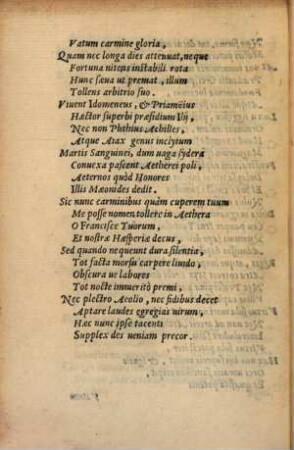 Vatum carmine gloria,
Quam nec longa dies attenuat, neque
Fortuna nitens instabili rota
Hunc sæua ut premat, illum
Tollens arbitrio suo.
Viuent Idomeneus, & Priameius
Hæctor superbi præsidium Ilij,
Nec non Phthius Achilles,
Atque Aiax genus incitym
Martis Sanguinei, dum uaga sydera
Conuexa pascent Aetherei poli,
Aeternos quòd Honores
Illis Mæonides dedit.
Sic nunc carminibus quàm cuperem tuum
Me posse nomen tollere in Aethera
O Francisce Tuorum,
Et nostræ Hæsperiæ decus,
Sed quando nequeunt dura silentia,
Tot facta morsu carpere liuido,
Obscura ut labores
Tot nocte immeritò premi,
Nec plectro Aeolio, nec fidibus decet
Aptare laudes egregias uirum,
Hæc nunc ipse tacenti
Supplex des ueniam precor.